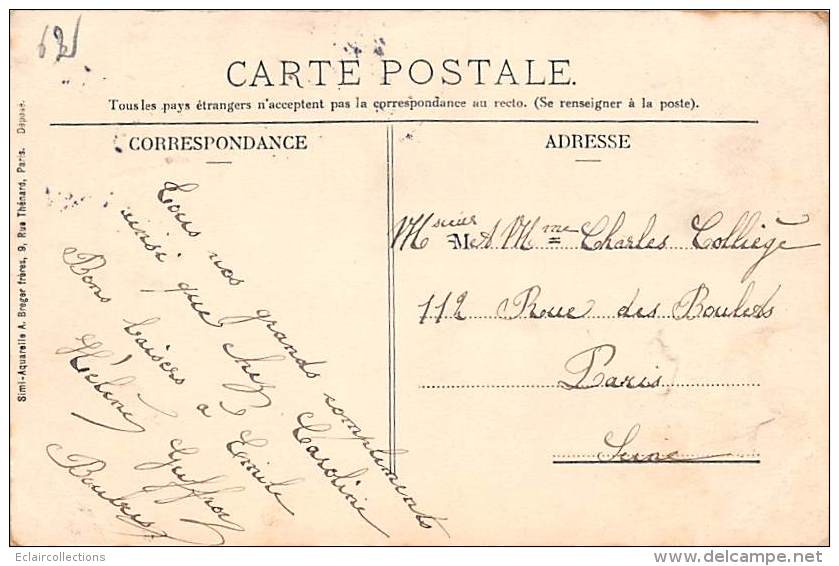 621
CARTE POSTALE.
Tous les pays étrangers n'acceptent pas la correspondance au recto. (Se renseigner à la poste).
CORRESPONDANCE
Tous nos grands compliments
ainsi que chez Caroline
Bons baisers a Emile
Hélène
ADRESSE
Msieur M et Mme Charles Colliège
112 Rue des Boulets
Paris
Seine
Simi-Aquarelle A. Breger frères, 9, Rue Thénard, Paris. Déposé.
Eclaircollections
delcampe.net